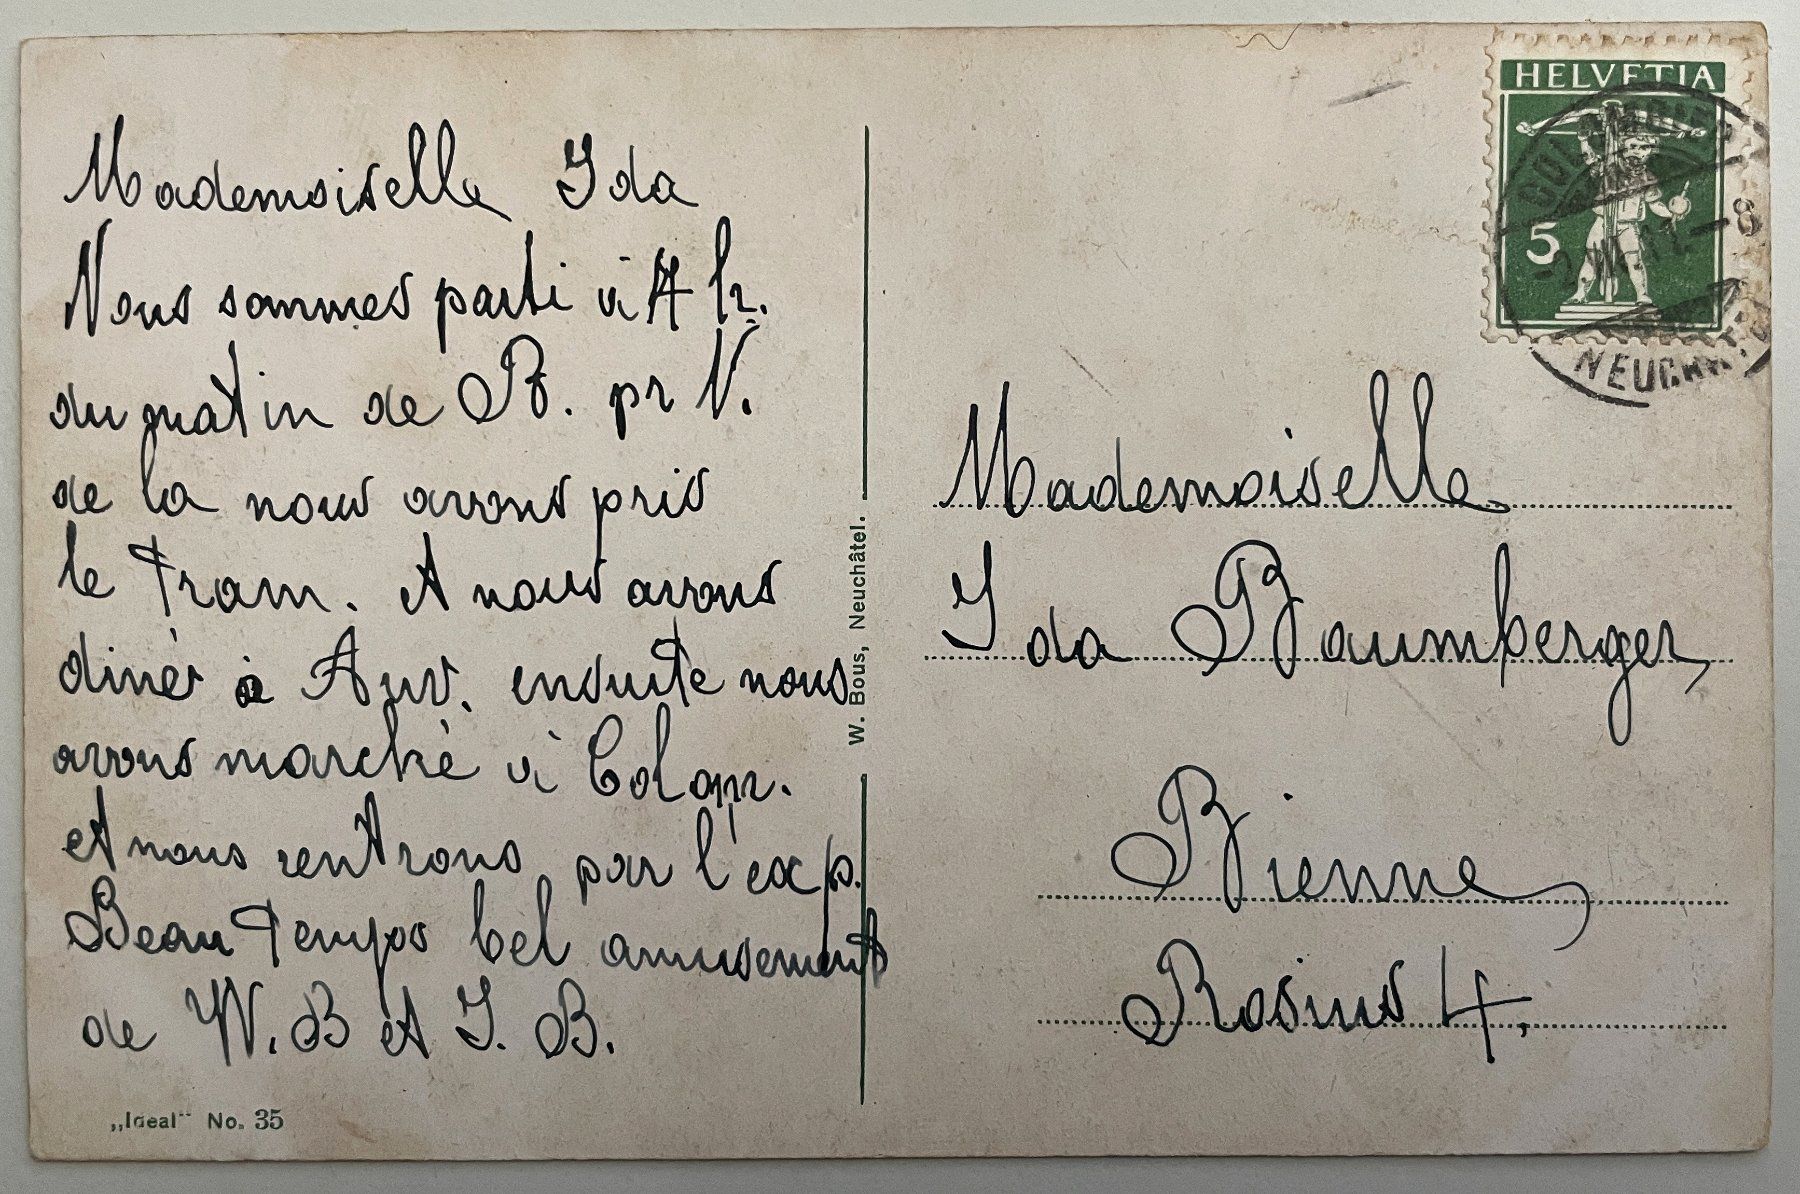 Mademoiselle Ida
Nous sommes parti à 7 h.
du matin de B. pr N.
de la nous avons pris
le Tram. et nous avons
diner à Auv. ensuite nous
avons marché à Colom.
et nous rentrons par l'exp.
Beau temps bel amusement
de W. B et I. B.
„Ideal" No. 35
W. Bous, Neuchâtel.
HELVETIA
5
COLOMBIER
NEUCHATEL
Mademoiselle
Ida Baumberger,
Bienne,
Rosius 4.